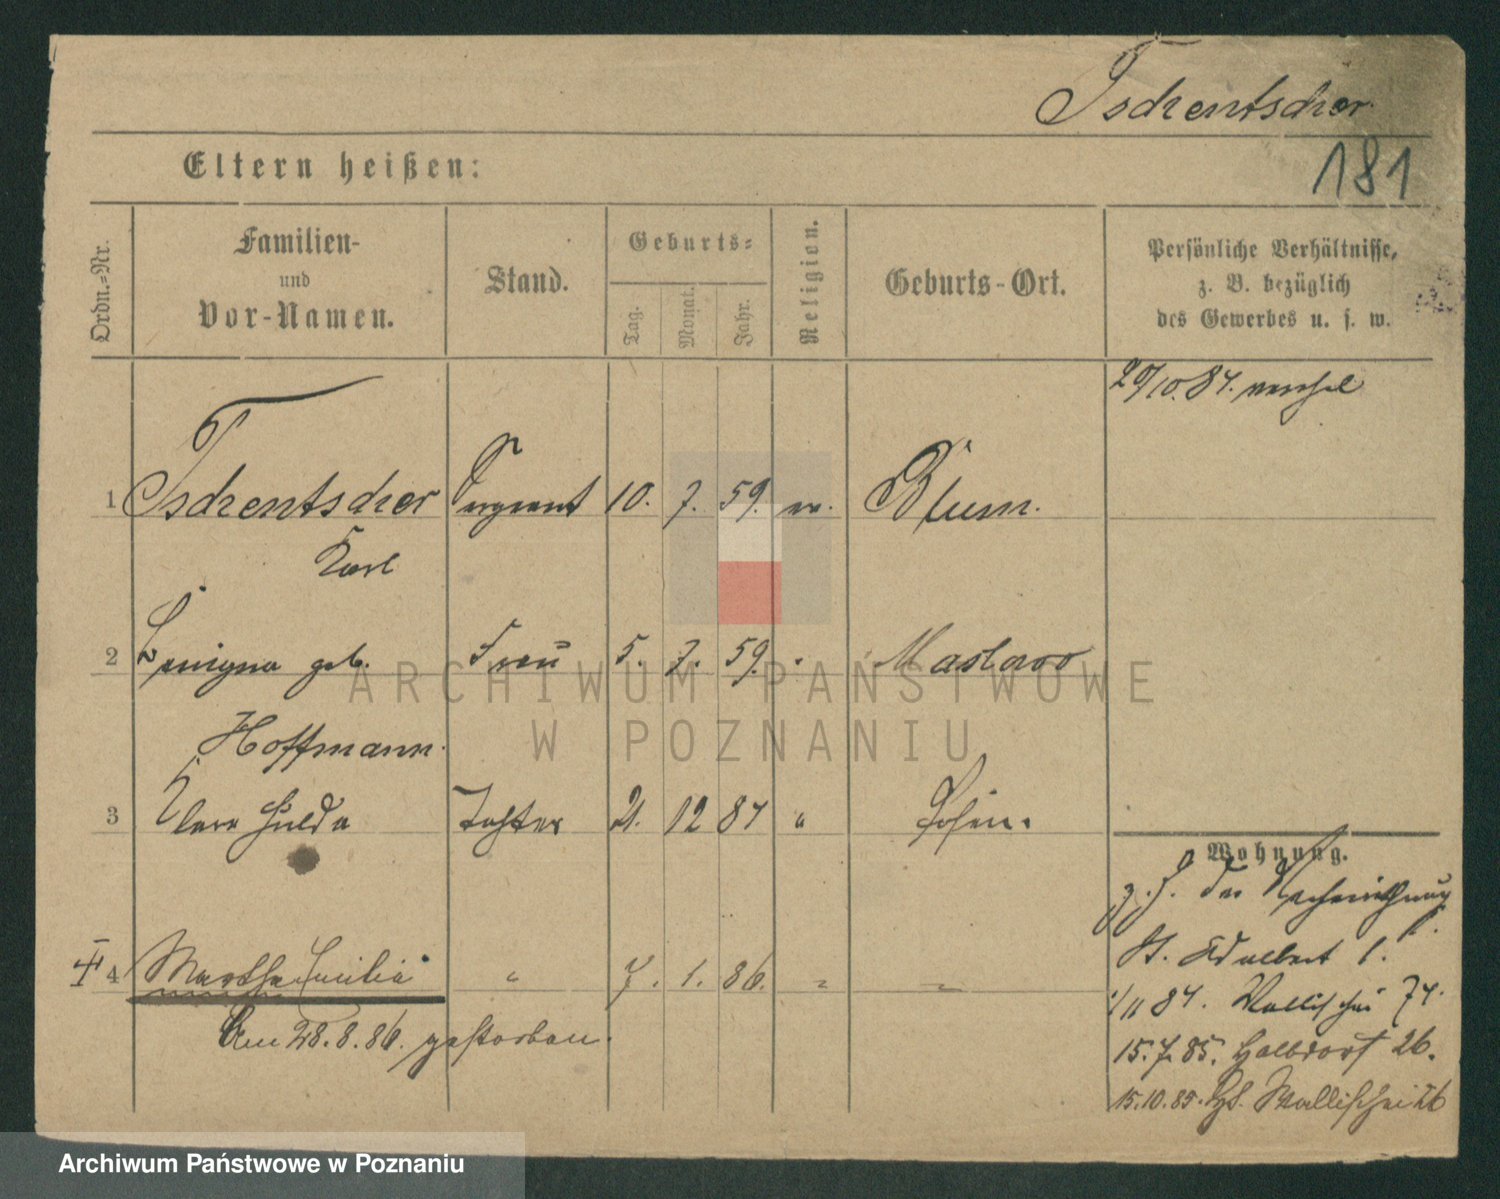 Tschentscher
Eltern heißen:
181
Ordn.=Nr.
Familien-
und
Vor-Namen.
Stand.
Geburts=
Tag.
Monat.
Jahr.
Religion.
Geburts-Ort.
Persönliche Verhältnisse,
z. B. bezüglich
des Gewerbes u. s. w.
29/10.84.
1 Tschentscher Sergeant 10. 7. 59. ev. Blum.
Karl
2 Benigna geb. Frau 5. 7. 59. "
Hoffmann.
3 Clara Hulda Tochter 21. 12 84 " Posen.
Wohnung.
z. Z. der
St. Adalbert 1.
4 Martha Cecilie " 7. 1. 86. " "
1/11 84. Wallischei 74.
Am 28.8.86. gestorben.
15.7.85. Halbdorf 26.
15.10.85. Wallischei 26
ARCHIWUM PAŃSTWOWE
W POZNANIU
Archiwum Państwowe w Poznaniu